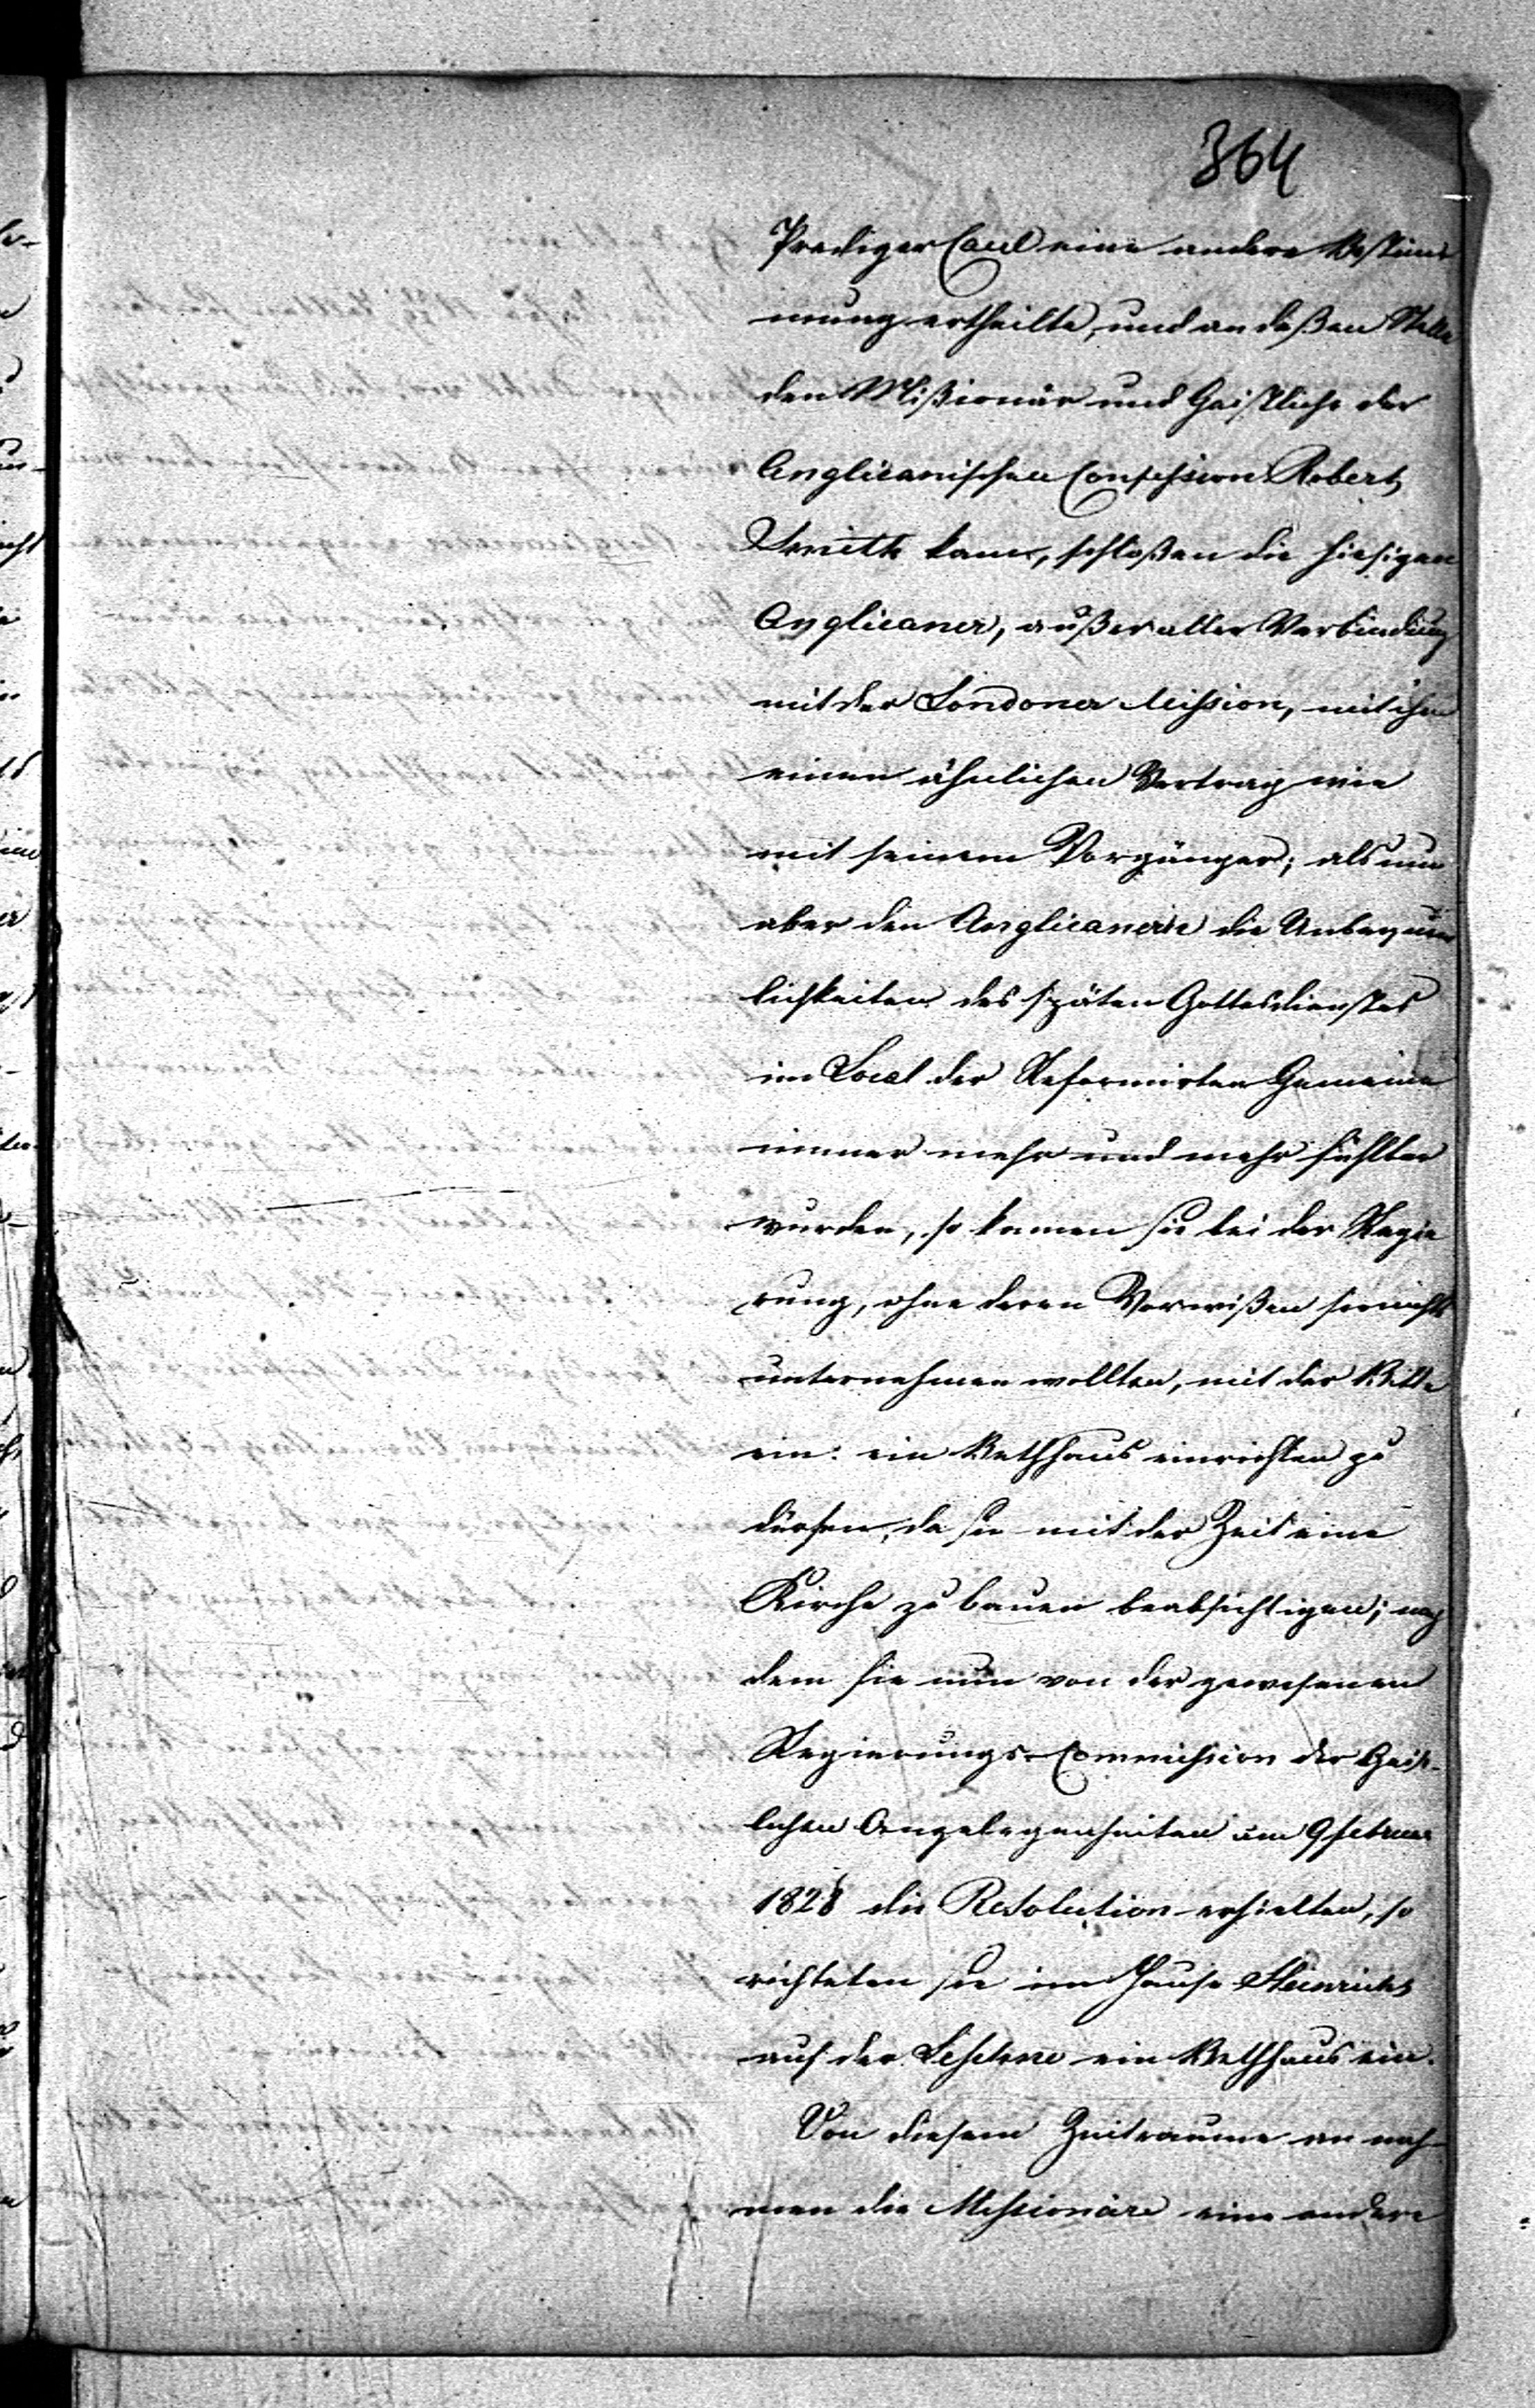 364
Prediger Caul eine andere Bestim¬
mung ertheilte, und an deßen Stelle
den Mißionär und Geistliche der
Anglicanischen Confession Robert
Smith kam, schloßen die hiesigen
Anglicaner, außer aller Verbindung
mit der Londoner Mission, mit ihm
einen ähnlichen Vertrag wie
mit seinem Vorgänger; als nun
aber den Anglicanern die Unbequem
lichkeiten des späten Gottesdienstes
im Local der Reformirten Gemeine
immer mehr und mehr fühlbar
wurden, so kamen sie bei der Regie
rung, ohne deren Vorwißen sie nichts
unternehmen wollten, mit der Bitte
ein: ein Bethhaus einrichten zu
dürfen, da sie mit der Zeit eine
Kirche zu bauen beabsichtigen; nach
dem sie nun von der gewesenen
Regierungs-Commission der Geist-
lichen Angelegenheiten am 9 februar
1828 die Resolution erhielten, so
richteten sie im Hause Heinrichs
auf der Leschno ein Bethhaus ein.
Von diesem Zeitraume an nah-
men die Missionäre eine andere